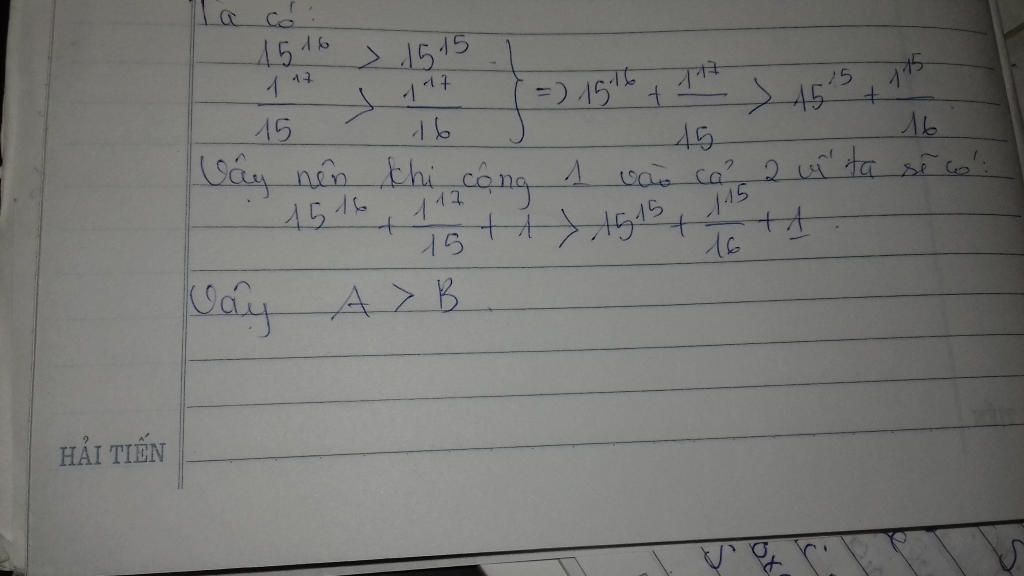 Ta có:
15^16 > 15^15
1^17/15 > 1^17/16 } => 15^16 + 1^17/15 > 15^15 + 1^15/16
Vậy nên khi cộng 1 vào cả 2 vế ta sẽ có:
15^16 + 1^17/15 + 1 > 15^15 + 1^15/16 + 1.
Vậy A > B.
HẢI TIẾN